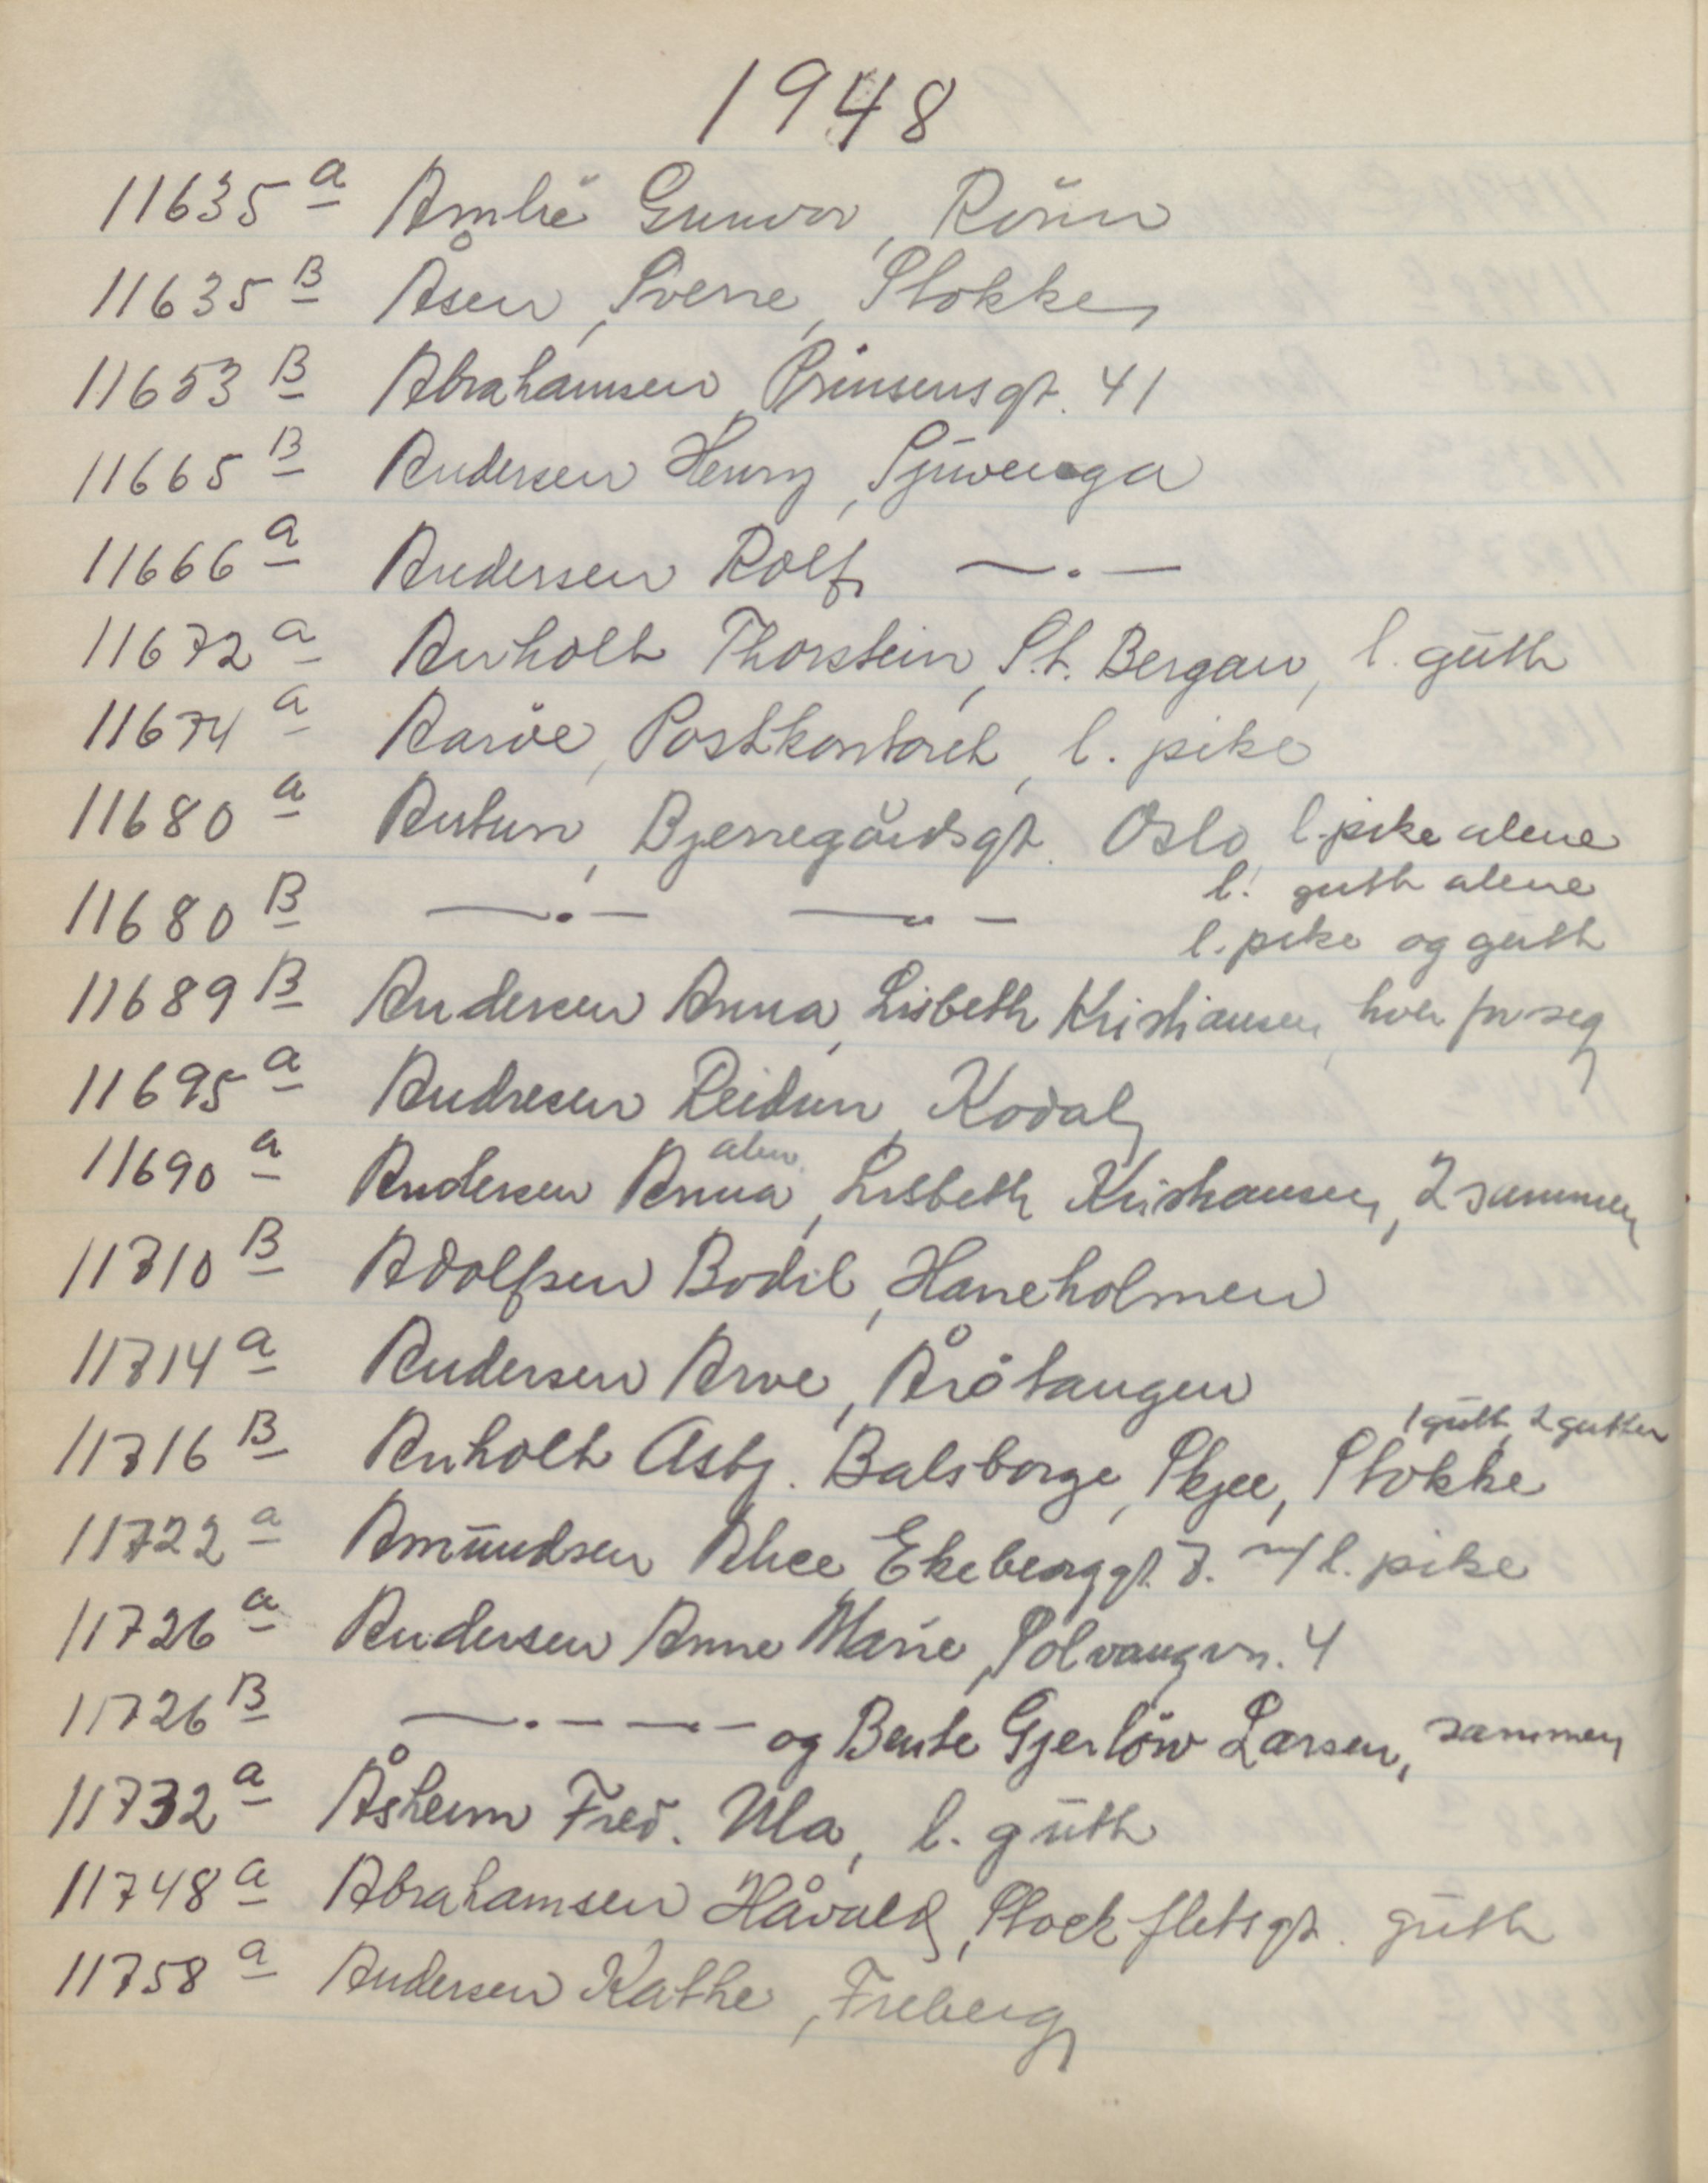 1948
11635 a Amlie Gunvor, Rönn
11635 B Åsen, Sverre, Stokke
11653 B Abrahamsen, Prinsensgt. 41
11665 B Andersen Henry, Sjuvenga
11666 a Andersen Rolf —.—
11672 a Anholt Thorstein, St. Bergan, l. gutt
11674 a Aaröe, Postkontoret, l. pike
11680 a Antun, Bjerregårdsgt. Oslo l. pike alene
l. gutt alene
11680 B —.— —.—
l. pike og gutt
11689 B Andersen Anna, Lisbeth Kristiansen, hver for seg
11695 a Andresen Reidun, Kodal
alen.
11690 a Andersen Anna, Lisbeth Kristiansen, 2 sammen
11710 B Adolfsen Bodil, Haneholmen
11714 a Andersen Arve, Årötangen
1 gutt, 2 gutter
11716 B Anholt Asbj. Balsborge, Skjee, Stokke
11722 a Amundsen Alice Ekeberggt. 7. m/ l. pike
11726 a Andersen Anne Marie, Solvangvn. 4
11726 B —.— —.— og Bente Gjerlöw Larsen, sammen
11732 a Åsheim Fred. Ula, l. gutt
11748 a Abrahamsen Håvald, Stockfletsgt. gutt
11758 a Andersen Kathe, Freberg